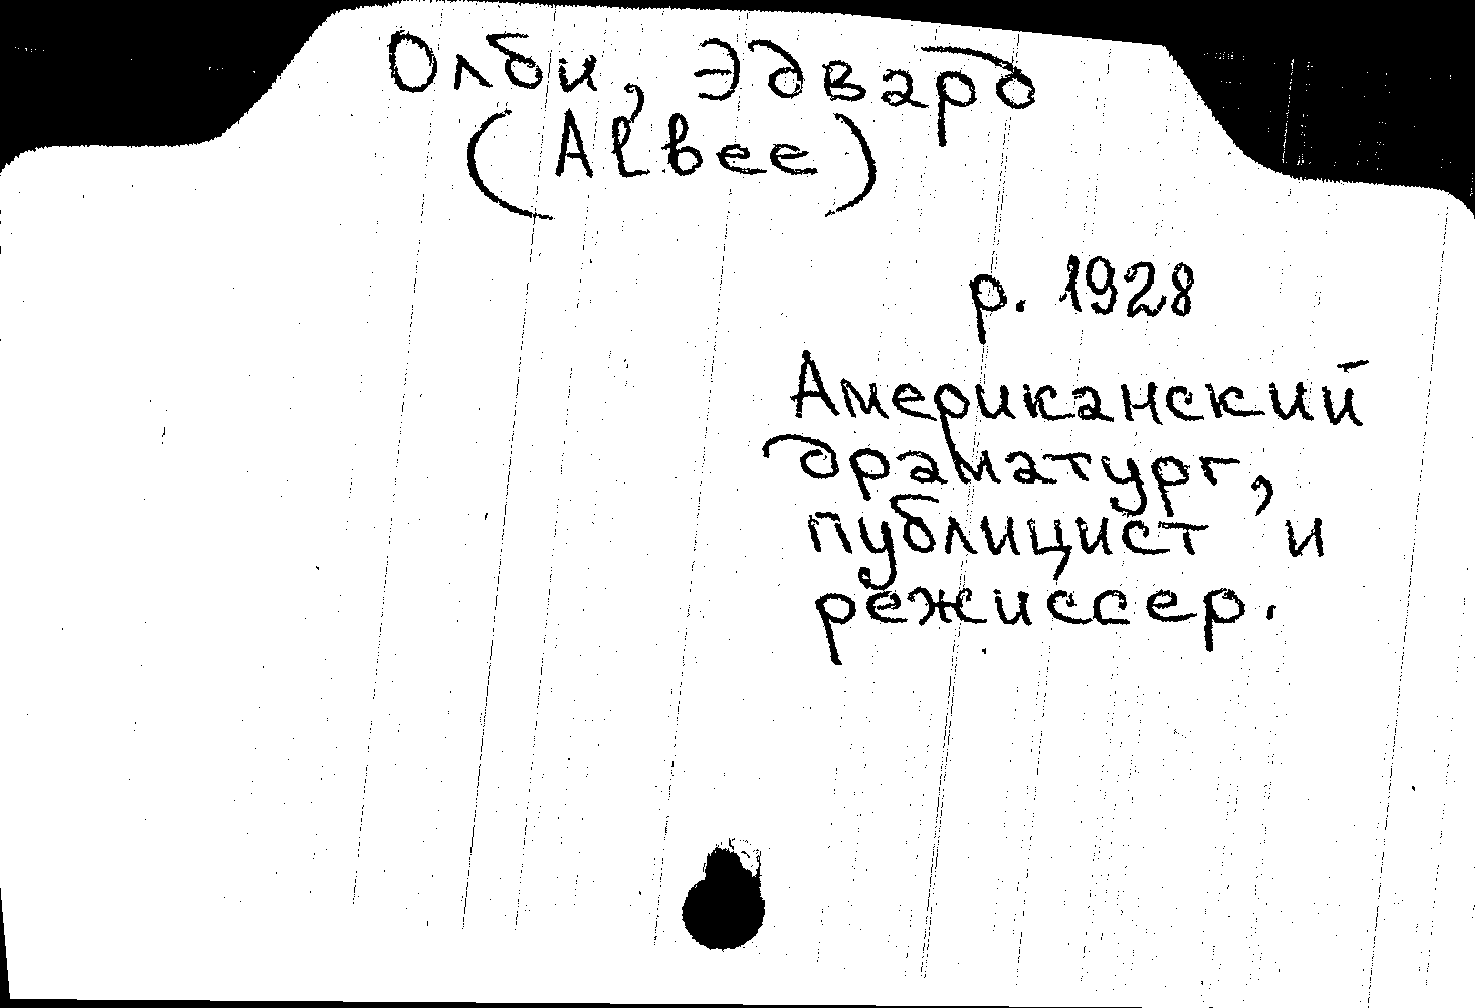 Олби, Эдвард
(Albee)
р. 1928
Американский
драматург,
публицист и
режиссер.